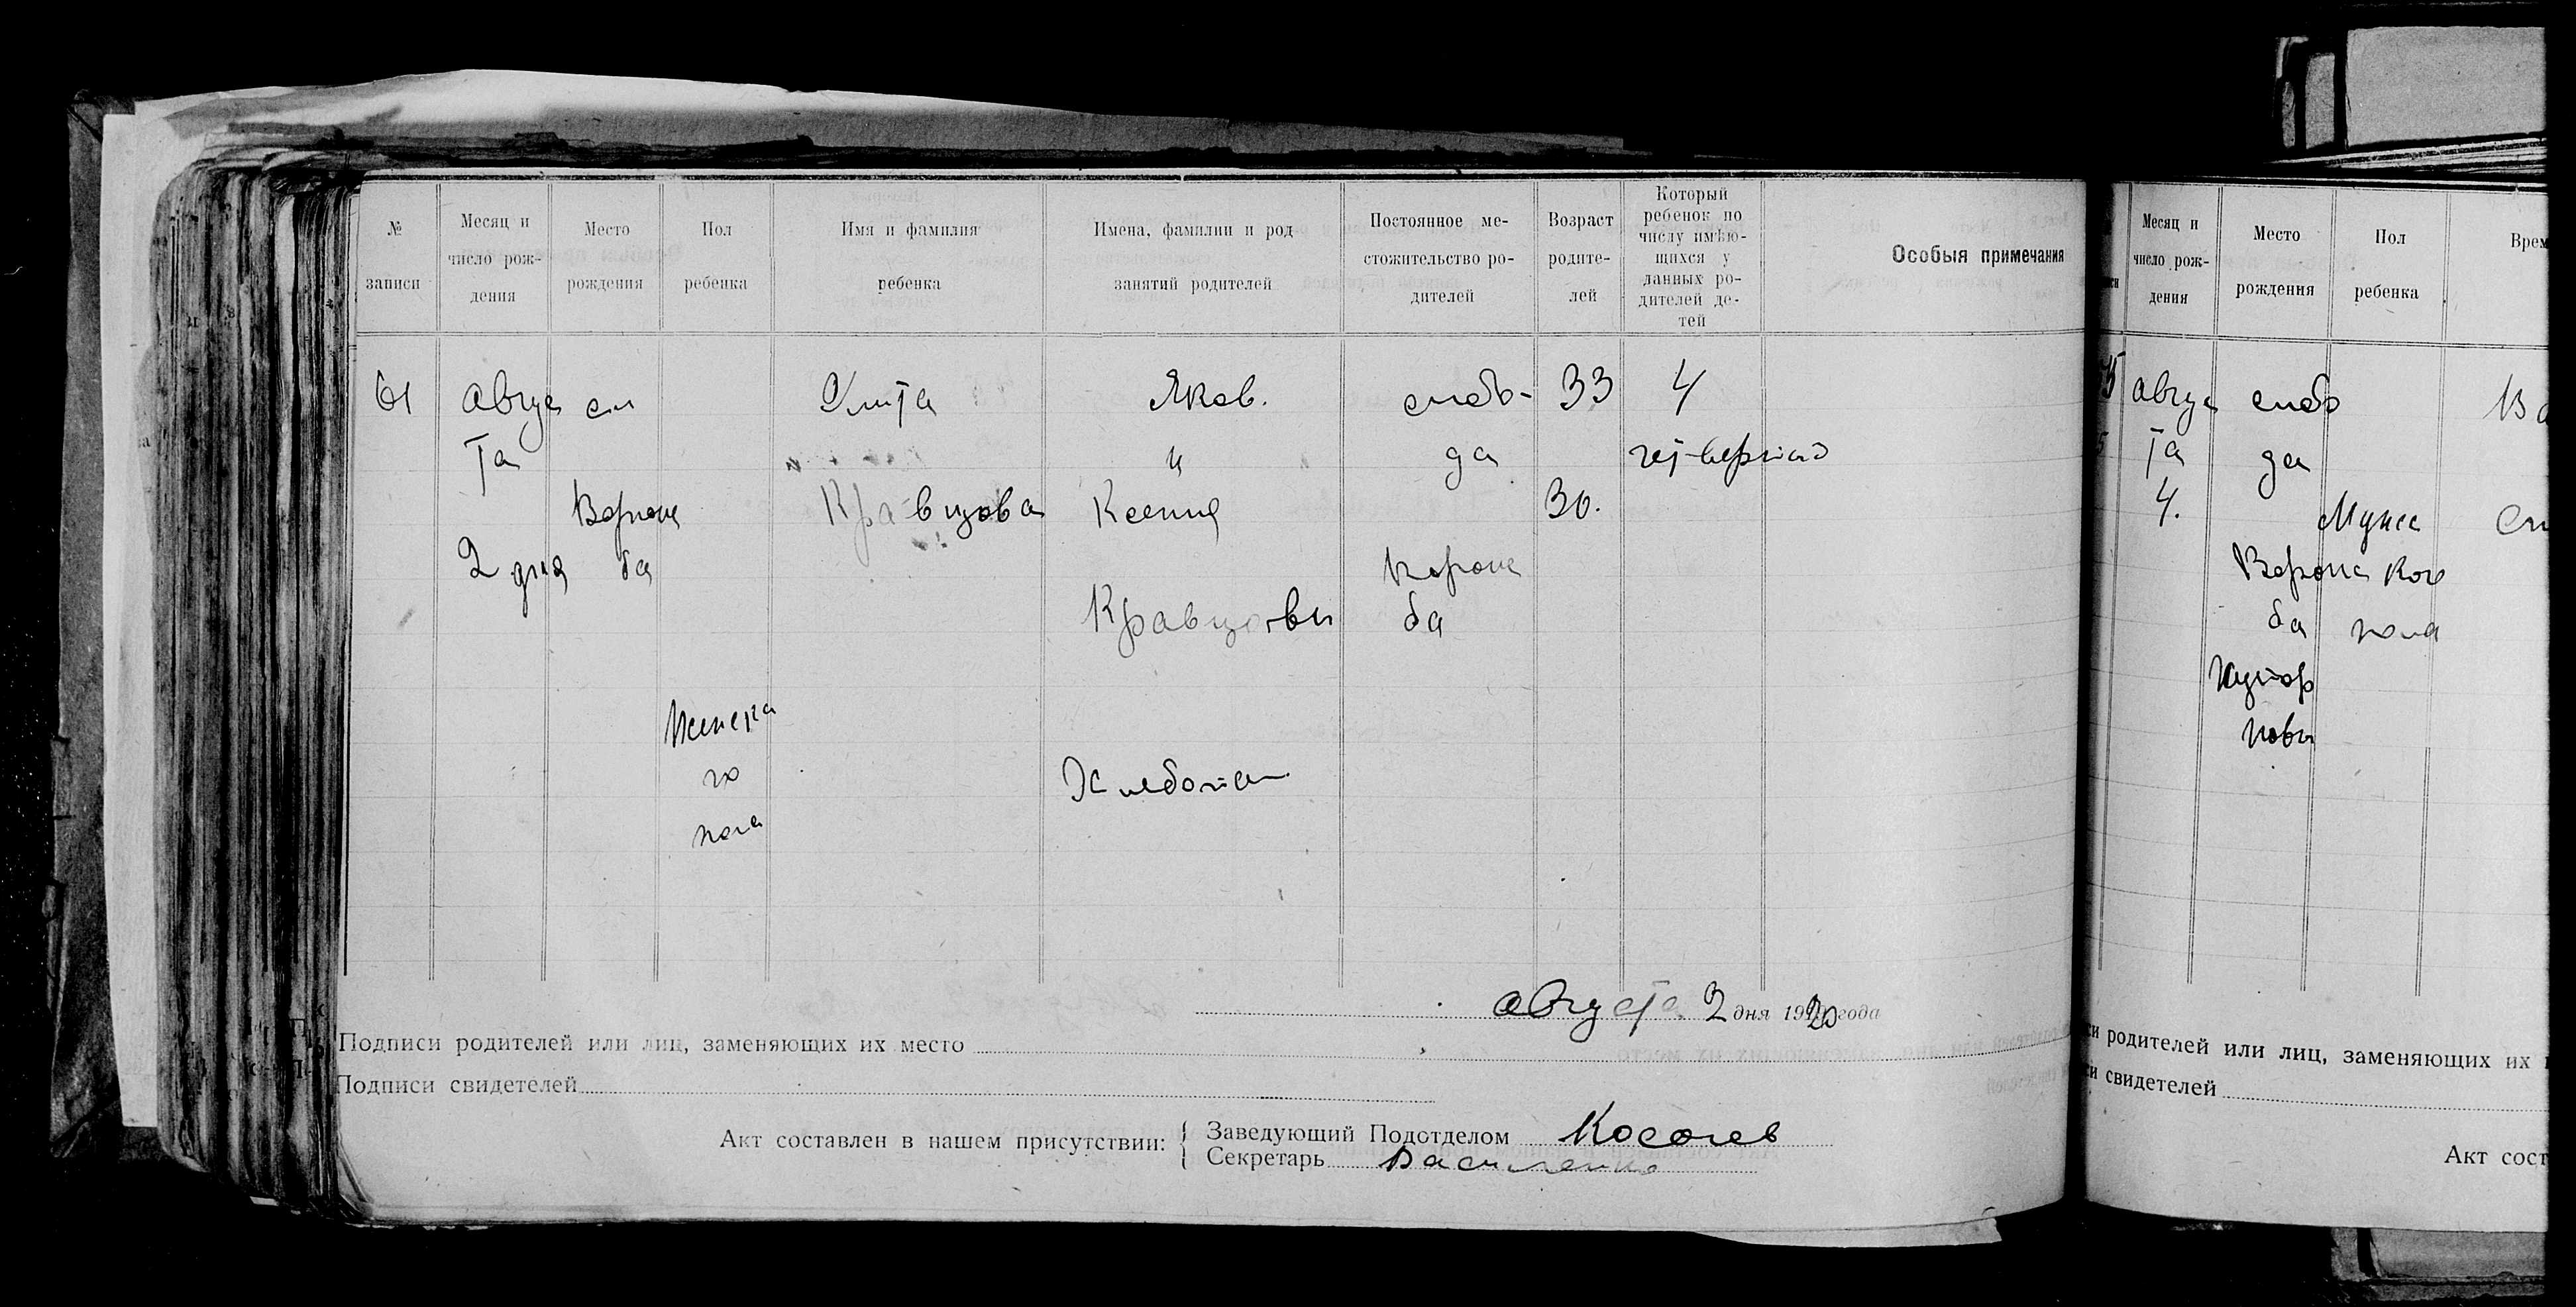 № записи
Месяц и число рож-дения
Место рождения
Пол ребенка
Имя и фамилия ребенка
Имена, фамилии и род занятий родителей
Постоянное ме-стожительство ро-дителей
Возраст родите-лей
Который ребенок по числу имѣю-щихся у данных ро-дителей де-тей
Особыя примечания
61 Авгус сл Улита Яков. слобо- 33 4
та и да четвертой
Вороне Кравцова Ксения 30.
2 дня ба Вороне
Кравцовы ба
Женска
го Хлебопаш
пола
августа 2 дня 1920 года
Подписи родителей или лиц, заменяющих их место
Подписи свидетелей
Акт составлен в нашем присутствии:
Заведующий Подотделом
Секретарь Василенко
Месяц и число рож-дения
Место рождения
Пол ребенка
Врем
Авгус слобо
та да
4. Мужс
Вороне ког
ба пола
хутор
родителей или лиц, заменяющих их
свидетелей
Акт сост